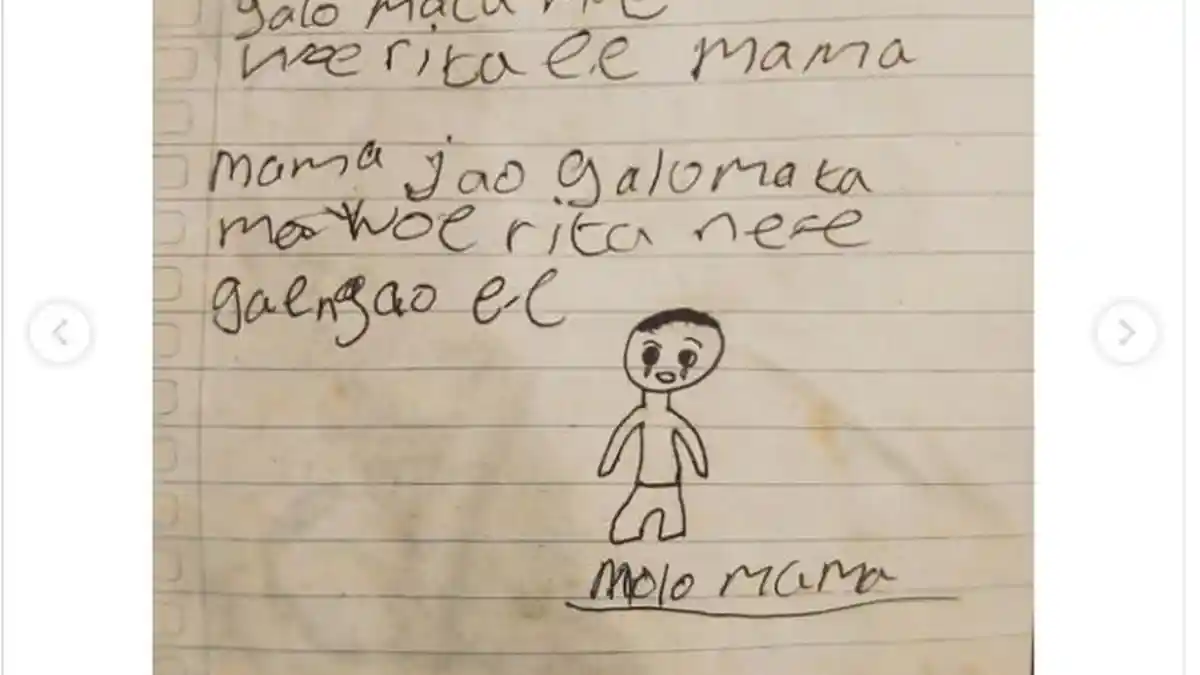 galo mata
woe rita ee mama
mama jao galo mata
woe rita nee
gaengao ee
Molo mama